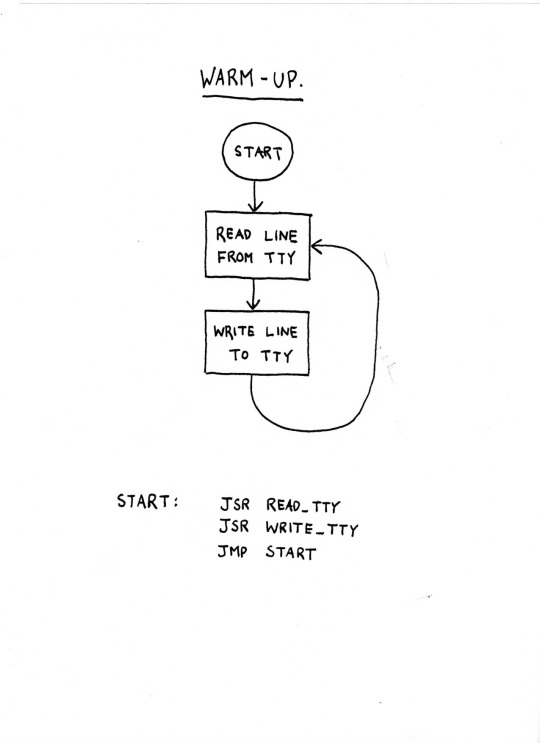 WARM-UP.
START
READ LINE
FROM TTY
WRITE LINE
TO TTY
START: JSR READ_TTY
JSR WRITE_TTY
JMP START